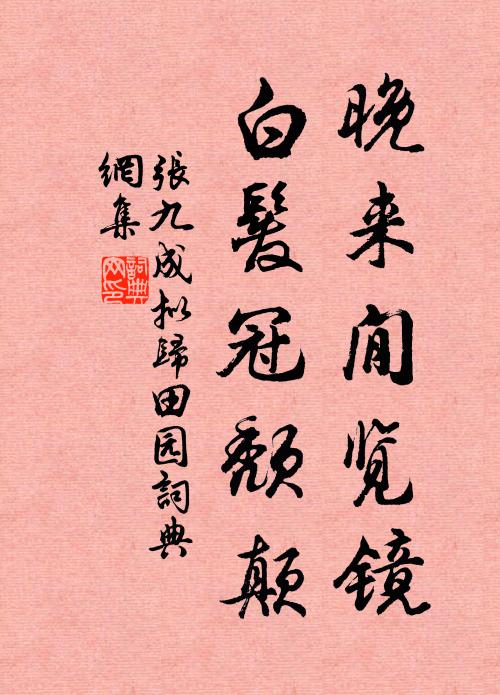 晚来闲览镜
白髮冠颓颠
張九成拟歸田园詞典
網集
詞典
网印